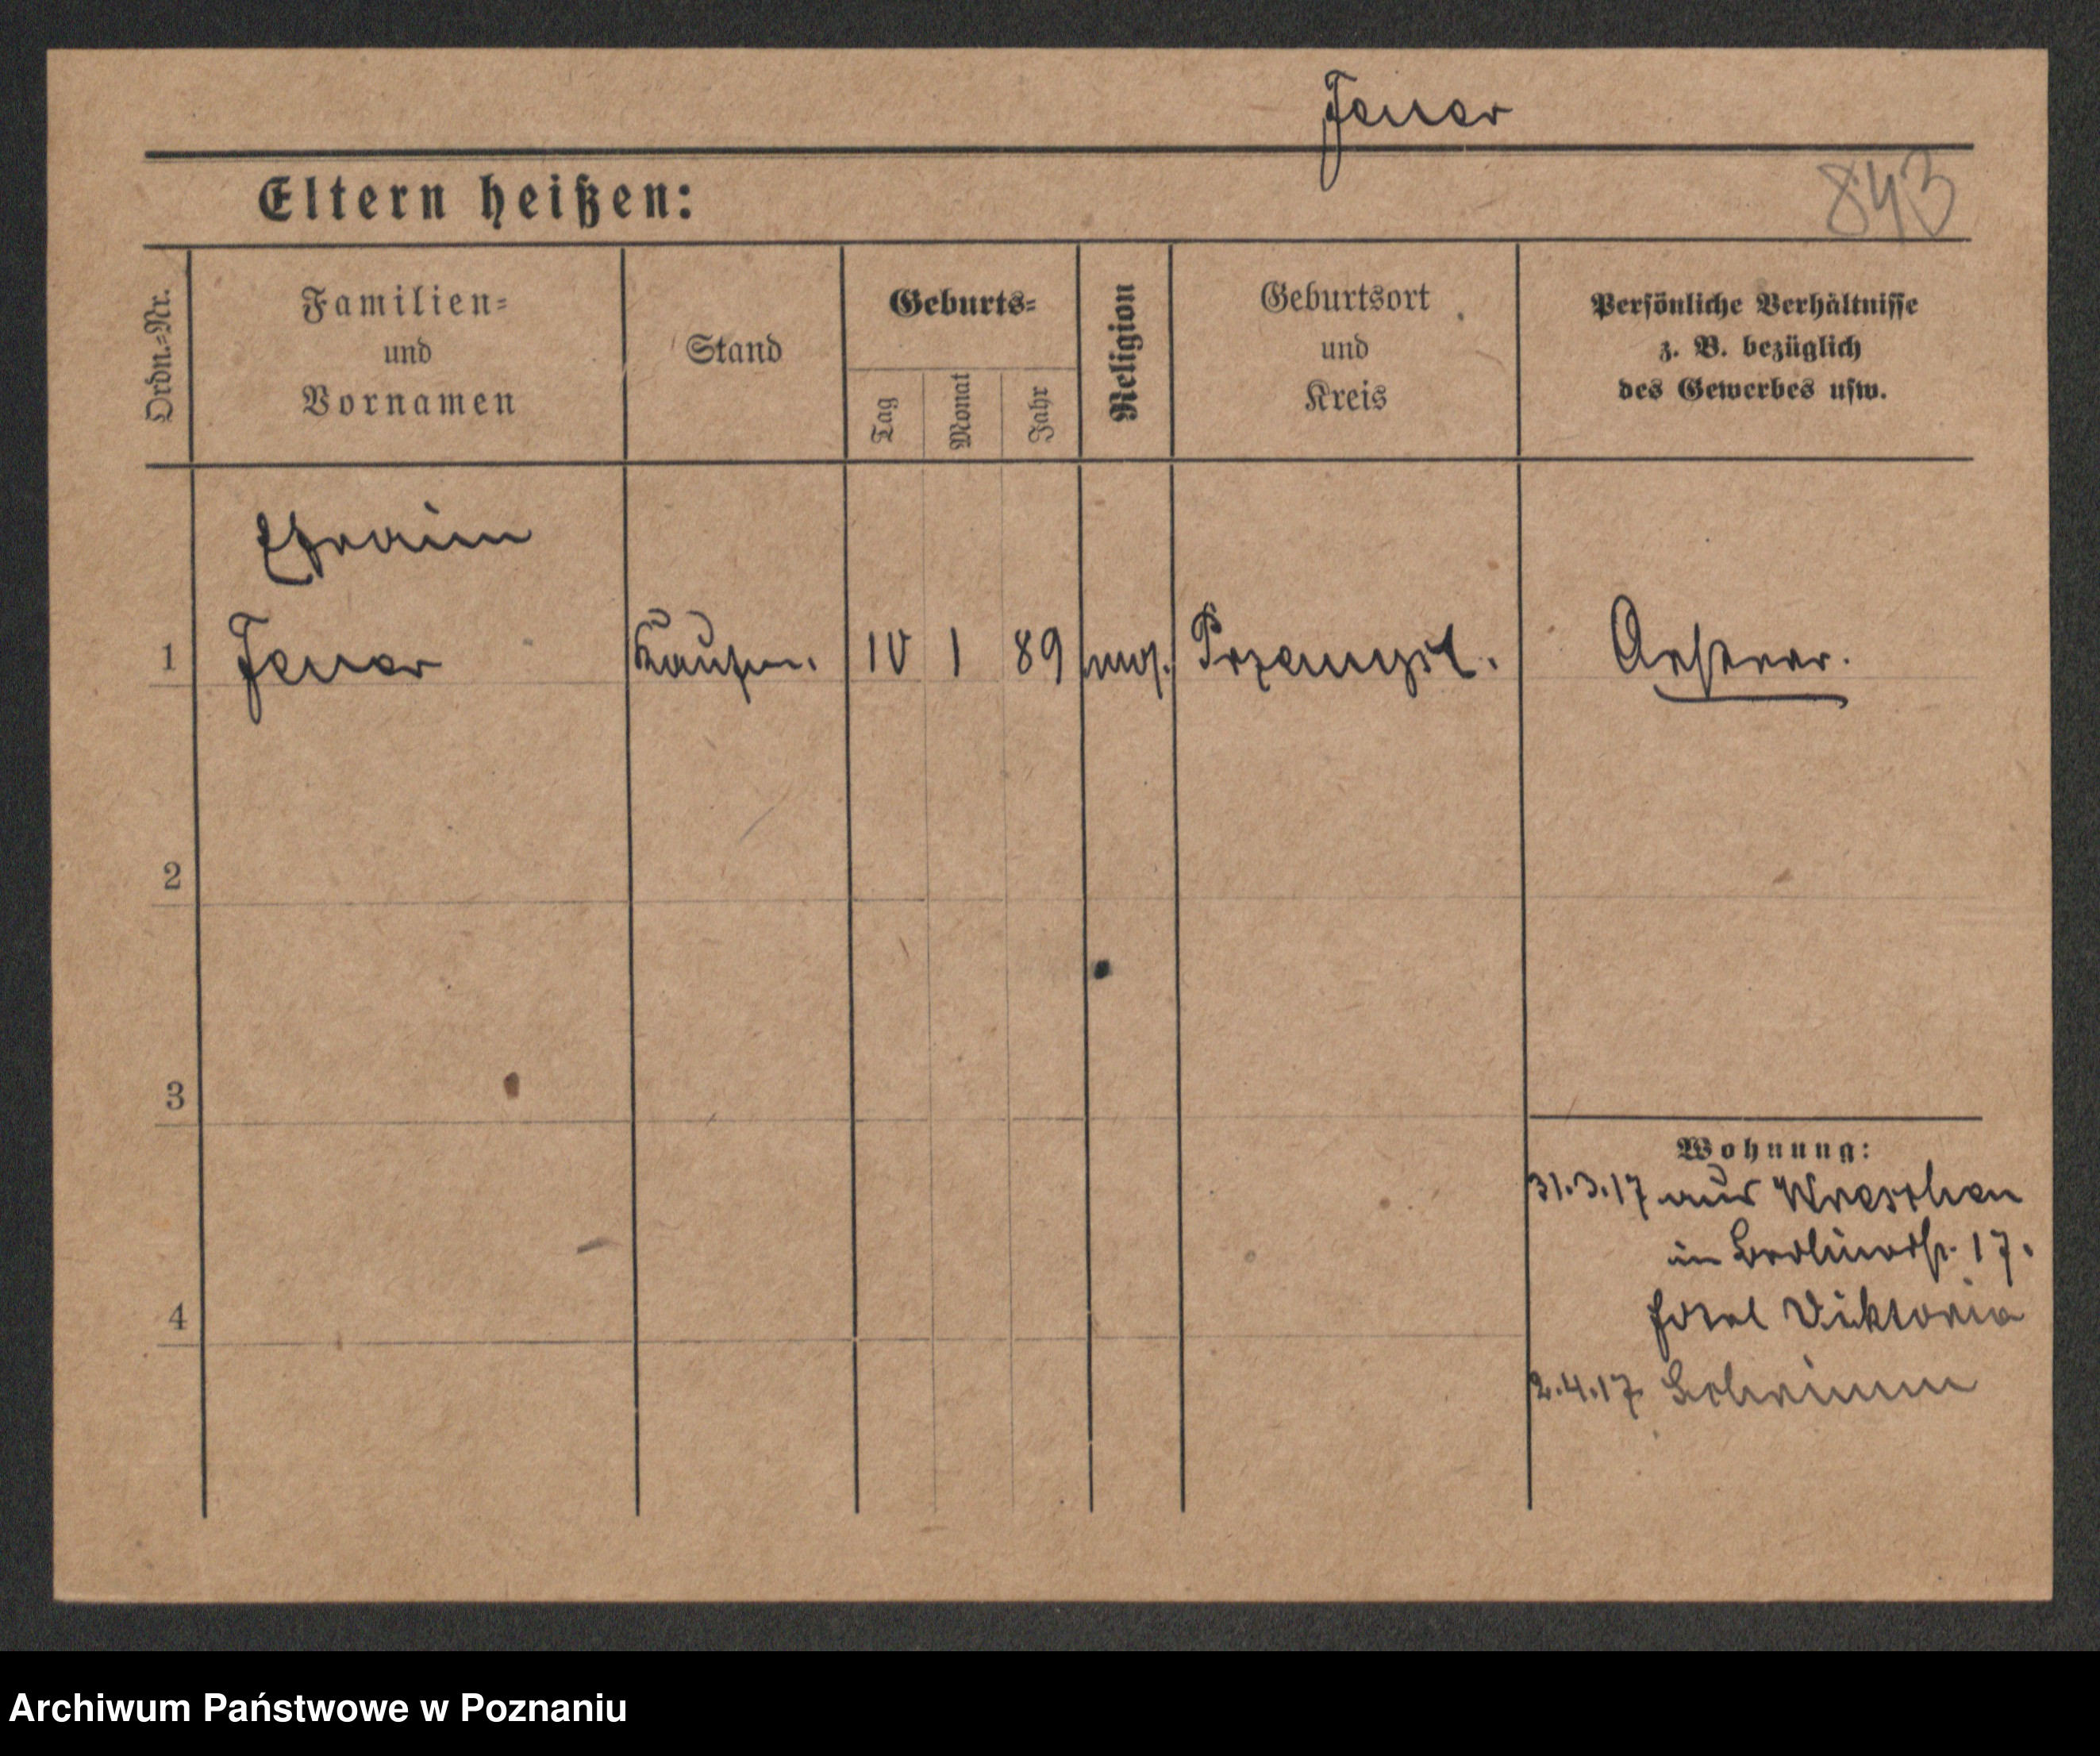 Jenner
Eltern heißen:
843
Ordn.=Nr.
Familien=
und
Vornamen
Stand
Geburts=
Tag
Monat
Jahr
Religion
Geburtsort
und
Kreis
Persönliche Verhältnisse
z. B. bezüglich
des Gewerbes usw.
Efraim
1 Kaufm. 10 1 89 mos.
2
3
4
Wohnung:
31.3.17 aus Wreschen
in Berlinerstr. 17.
Hotel Viktoria
2.4.17
Archiwum Państwowe w Poznaniu